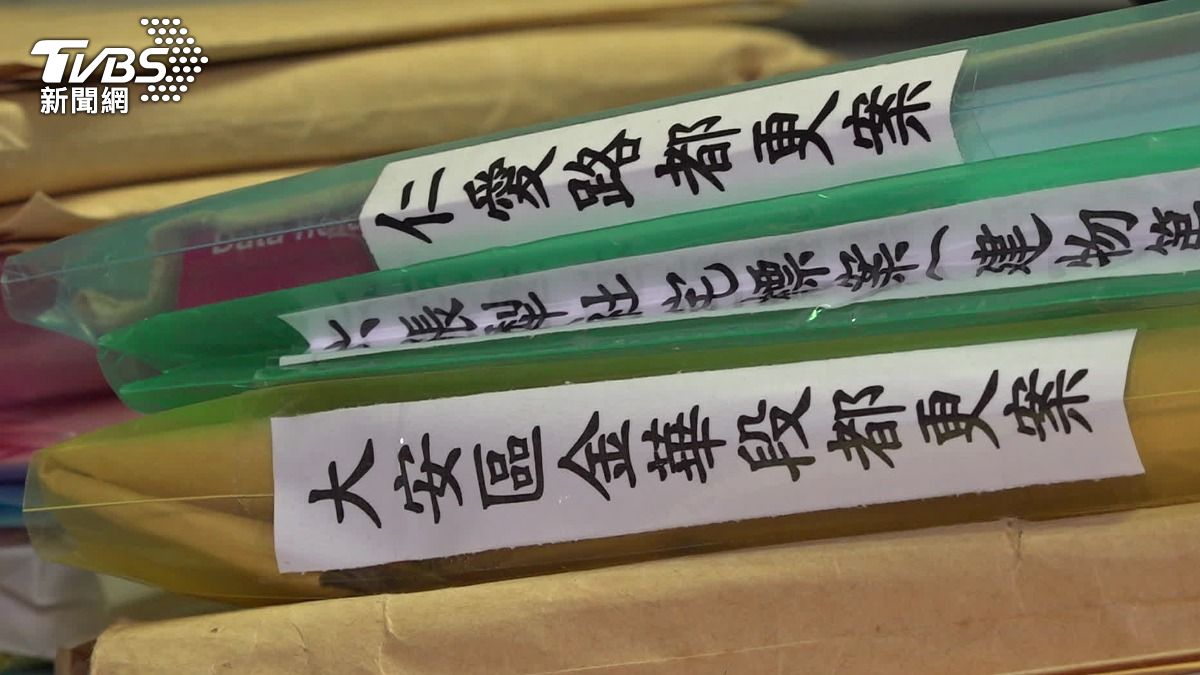 TVBS
新聞網
仁愛路都更案
Data
六張犁社宅標案(建物
大安區金華段都更案